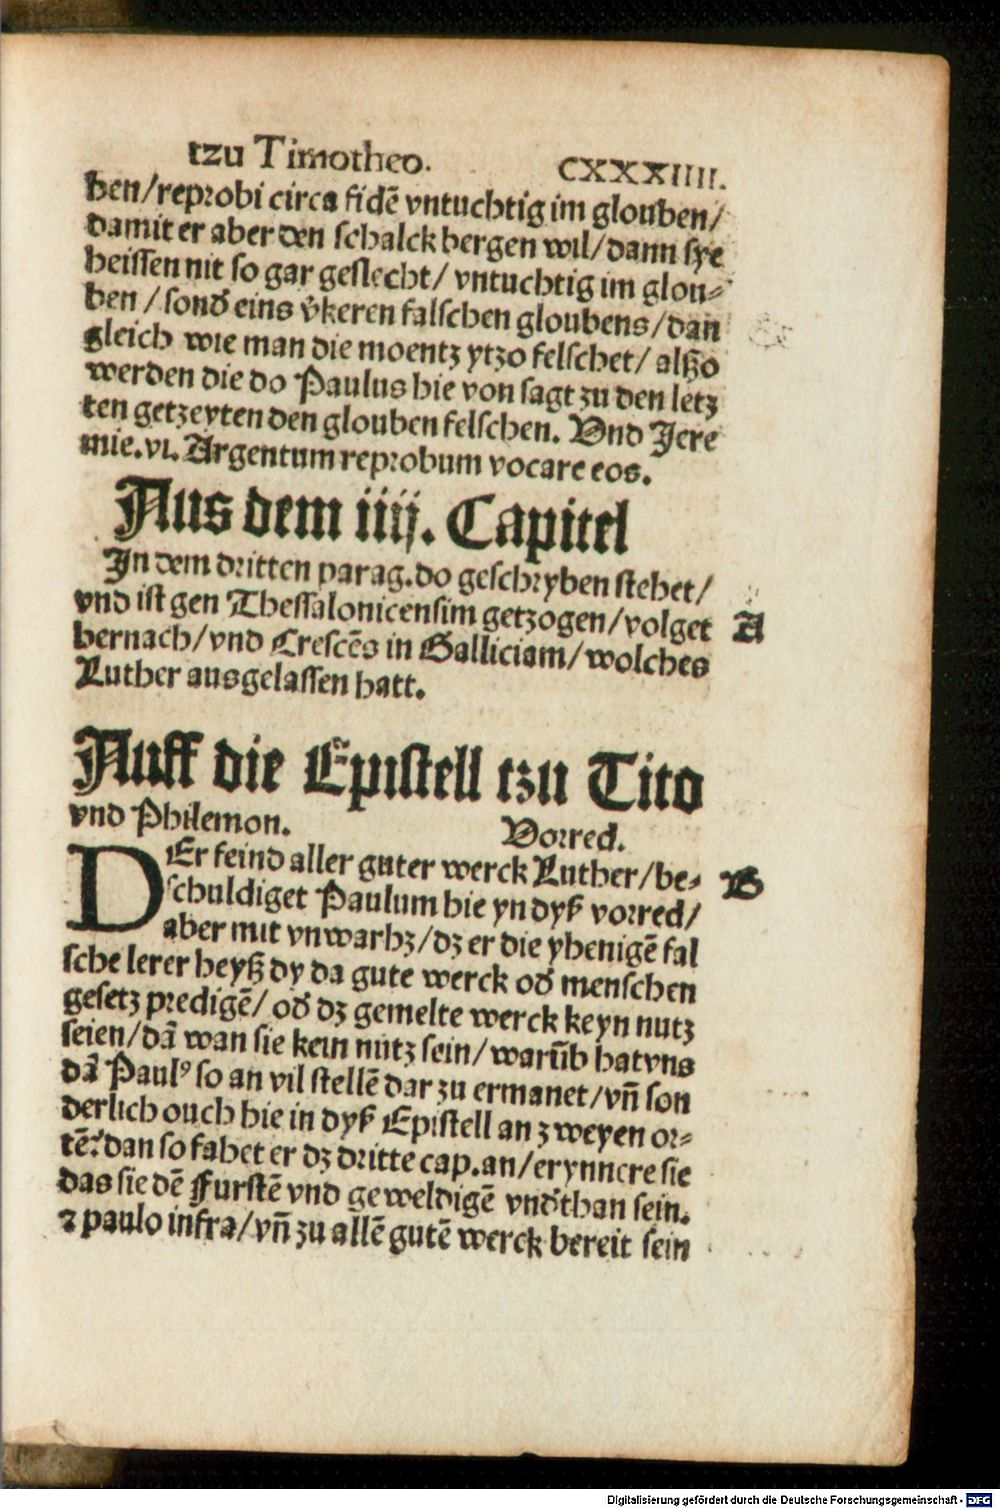 tzu Timotheo. CXXXIIII.
ben/reprobi circa fidē vntuchtig im glouben/
damit er aber den schalck bergen wil/dann sye
heissen nit so gar geslecht/ vntuchtig im glou⸗
ben / sond̕ eins v̕keren falschen gloubens/dan
gleich wie man die moentz ytzo felschet/ alßo
werden die do Paulus hie von sagt zu den letz
ten getzeyten den glouben felschen. Vnd Jere
mie.vi. Argentum reprobum vocare eos.
Aus dem iiij. Capitel
In dem dritten parag.do geschryben stehet/
vnd ist gen Thessalonicensim getzogen/volget A
hernach/vnd Crescēs in Galliciam/wolches
Luther ausgelassen hatt.
Auff die Epistell tzu Tito
vnd Philemon. Vorred.
DEr feind aller guter werck Luther/be⸗ B
schuldiget Paulum hie yn dyß vorred/
aber mit vnwarhz/dz er die yhenigē fal
sche lerer heyß dy da gute werck od̕ menschen
gesetz predigē/ od̕ dz gemelte werck keyn nutz
seien/dā wan sie kein nutz sein/warūb hat vns
dā Paulꝰ so an vil stellē dar zu ermanet/vn̄ son
derlich ouch hie in dyß Epistell an zweyen or⸗
tē?dan so fahet er dz dritte cap.an/erynnere sie
das sie dē Furstē vnd geweldigē vnd̕than sein.
⁊ paulo infra/vn̄ zu allē gutē werck bereit sein
Digitalisierung gefördert durch die Deutsche Forschungsgemeinschaft - DFG